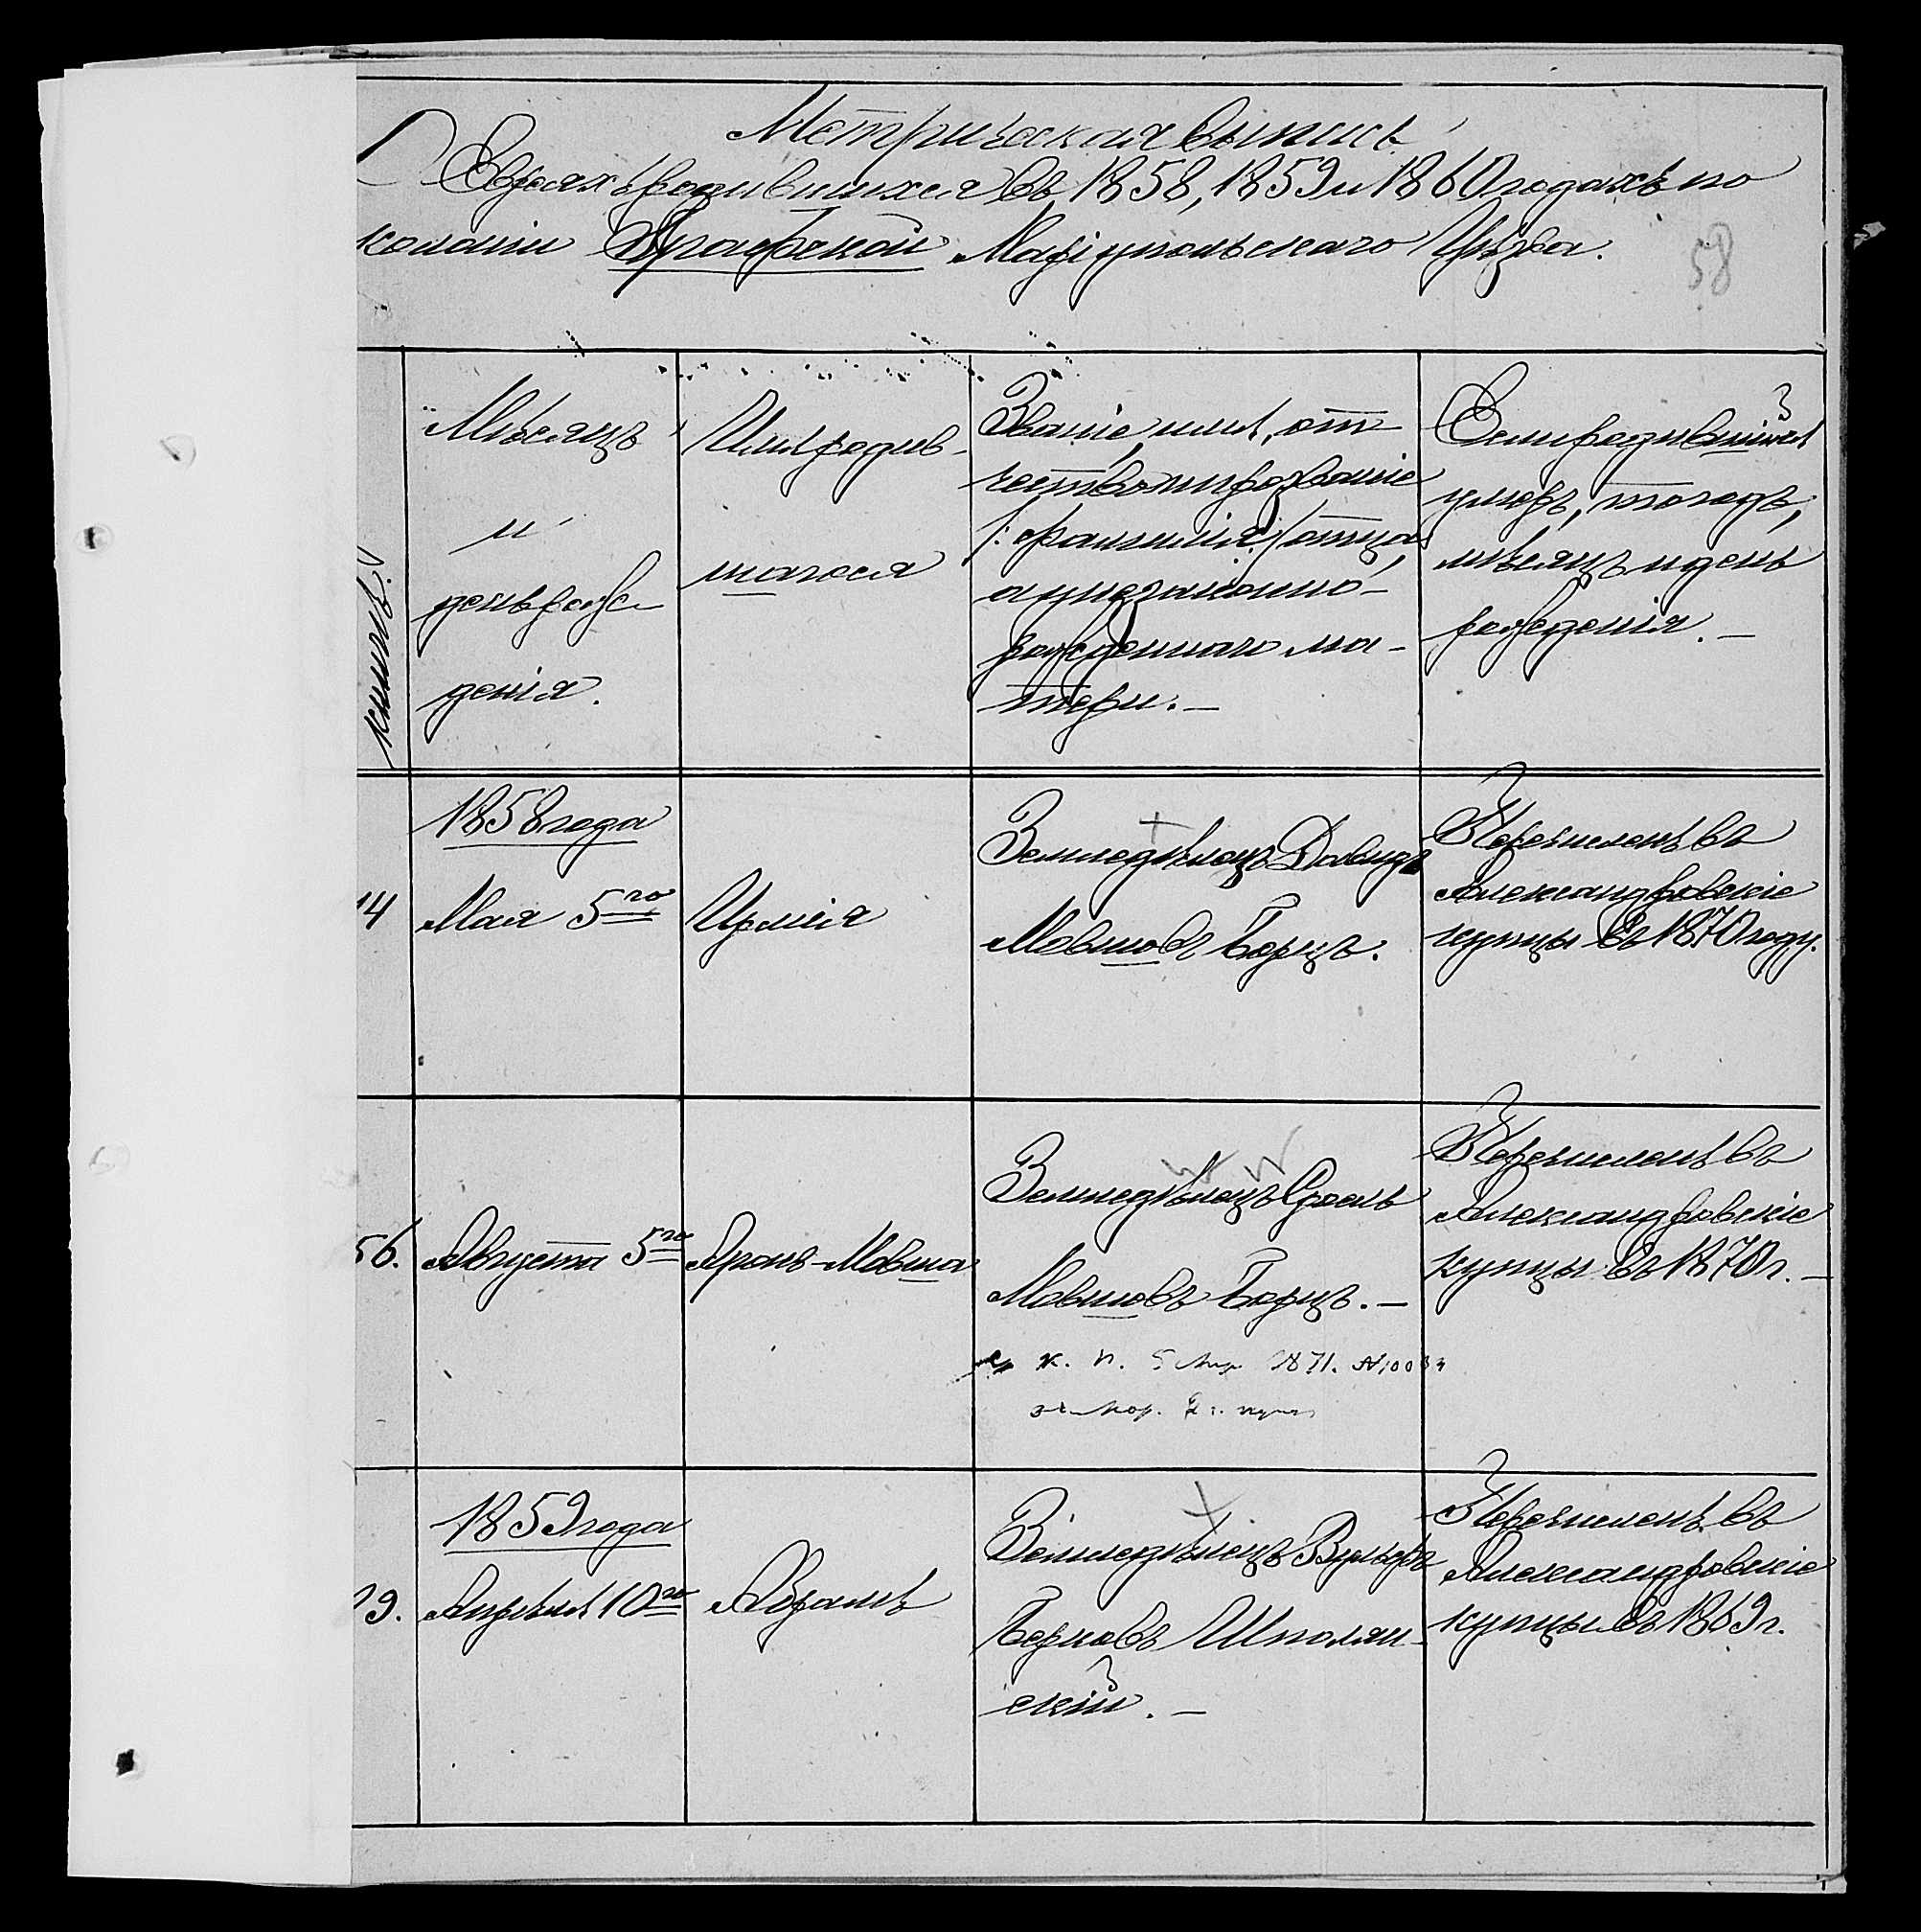 Метрическая выпись
О Евреяхъ родившихся въ 1858, 1859 и 1860 годахъ по
колоніи Графской Маріупольскаго Уѣзда.
58
книгѣ.
Мѣсяцъ
и
день рож-
денія.
Имя родив-
шагося
Званіе, имя, от-
чество и прозваніе
/: фамилія :/ отца,
а у незаконно-
рожденнаго ма-
тери. —
Если родившійся
умеръ, то годъ,
мѣсяцъ и день
рожденія. —
1858 года
14
Мая 5го
Ирмія
Земледѣлецъ Давидъ
Мовшовъ Берцъ.
Перечисленъ въ
Александровскіе
купцы въ 1870 году.
56.
Августа 5го
Аронъ-Мовша
Земледѣлецъ Сроель
Мовшовъ Берцъ. —
к. п. 5 1871. №
Перечисленъ въ
Александровскіе
купцы въ 1870 г. —
1859 года
29.
Апрѣля 10го
Абрамъ
Земледѣлецъ Вульфъ
Берковъ Шполян-
скій. —
Перечисленъ въ
Александровскіе
купцы въ 1869 г.